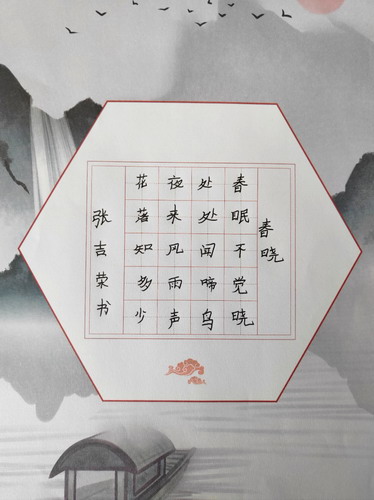 春晓
春眠不觉晓
处处闻啼鸟
夜来风雨声
花落知多少
张吉荣书